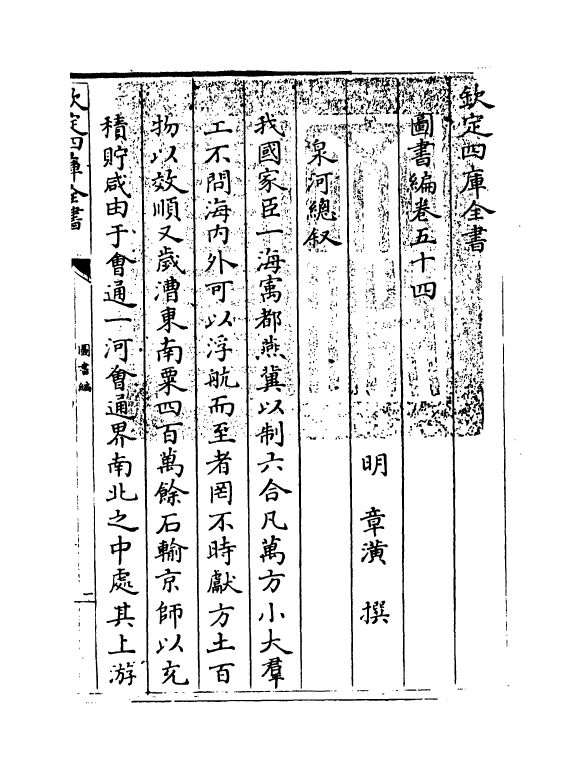 欽定四庫全書
圖書編卷五十四
明 章潢 撰
泉河總叙
我國家臣一海㝢都燕冀以制六合凡萬方小大羣
工不問海内外可以浮航而至者罔不時獻方土百
物以效順又歲漕東南粟四百萬餘石輸京師以充
積貯咸由于㑹通一河㑹通界南北之中處其上游
欽定四庫全書
圖書編
二